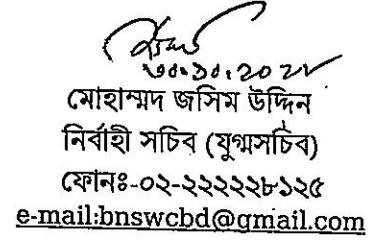 মোহাম্মদ জসিম উদ্দিন
নির্বাহী সচিব (যুগ্মসচিব)
ফোনঃ-০২-২২২২২৮১২৫
e-mail:bnswcbd@gmail.com